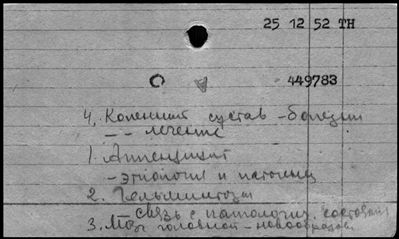 25 12 52 ТН
449783
4. Коленный сустав - болезни
- - лечение
1. Аппендицит
- этиология и патогенез
2. Гельминтозы
- связь с патологич. состояния
3. Мозг головной - новообразов.